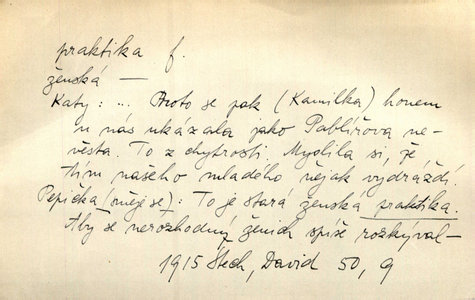 praktika f.
ženská —
Katy: ... Proto se pak (Kamilka) honem
u nás ukázala jako Pablířova ne-
věsta. To z chytrosti. Myslila si, že
tím našeho mladého nějak vydráždí.
Pepička (směje se): To je stará ženská praktika.
Aby se nerozhodný ženich spíše rozkýval –
1915 Štech, David 50, 9